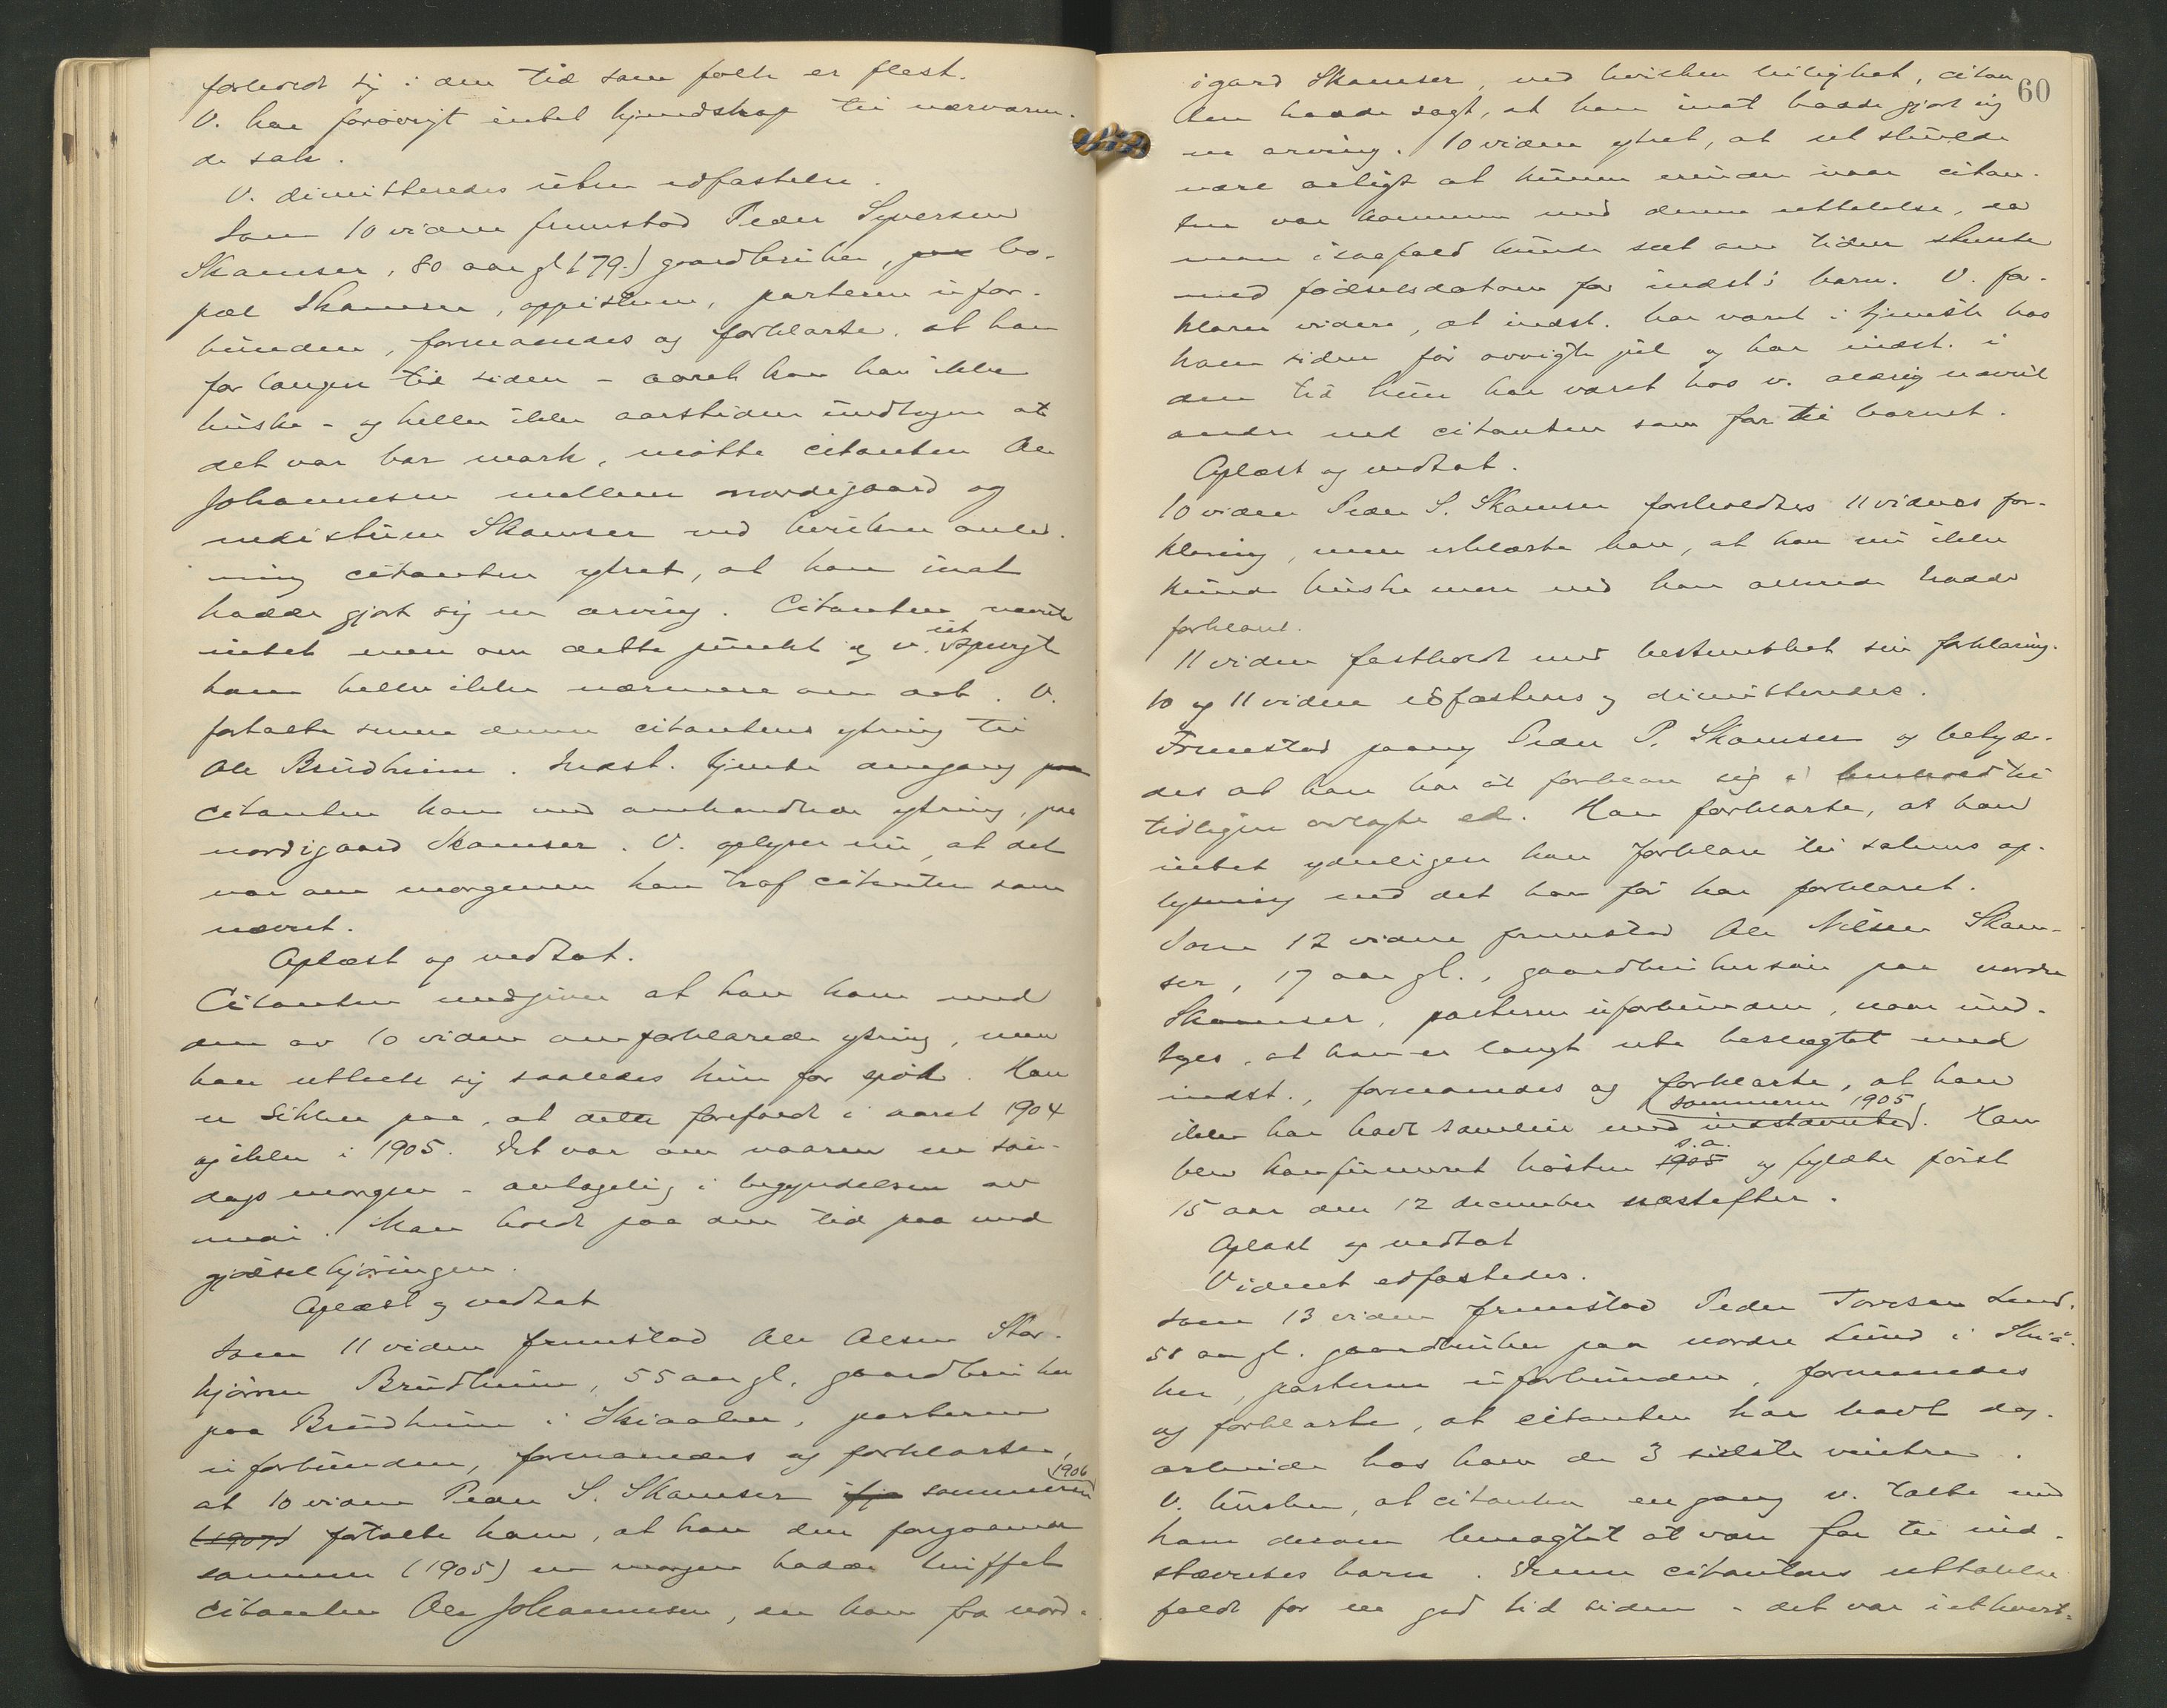 forholdt sig i den tid som folk er flest.
V. har forøvrigt intet kjendskap til nærværen-
de sak.
V. dimitteredes uten edfæstelse.
Som 10 vidne fremstod Peder Syversen
Skamser, 80 aar gl (79.) gaardbruker, paa bo-
pæl Skamser, oppistuen, parterne ufor-
bunden, formanedes og forklarte, at han
for længere tid siden – aaret kan han ikke
huske – og heller ikke aarstiden undtagen at
det var bar mark, møtte citanten Ole
Johannesen mellem nordigaard og
nedistuen Skamser ved hvilken anled-
ning citanten ytret, at han inat
hadde gjort sig en arving. Citanten nævnte
intet mer om dette punkt og v. utspurgte
ham heller ikke nærmere om det. V.
fortalte senere denne citantens ytring til
Ole Brudheim. Indst. tjente dengang paa
citanten kom med omhandlede ytring, paa
nordigaard Skamser. V. oplyser nu, at det
var om morgenen han traf citanten som
nævnt.
Oplæst og vedtat.
Citanten medgiver at han kom med
den av 10 vidne omforklarede ytring, men
han uttalte sig saaledes kun for spøk. Han
er sikker paa, at dette forefaldt i aaret 1904
og ikke i 1905. Det var om vaaren en søn-
dags morgen – antagelig i begyndelsen av
mai. Han holdt paa den tid paa med
gjødselkjøringen.
Oplæst og vedtat
Som 11 vidne fremstod Ole Olsen Stor-
kjørren Brudheim, 55 aar gl. gaardbruker
paa Brudheim i Skiaaker, parterne
uforbunden, formanedes og forklarte,
at 10 vidne Peder S. Skamser ifjor sommeren 1906
(1907) fortalte ham, at han den foregaaende
sommer (1905) en morgen hadde truffet
citanten Ole Johannesen, da han kom fra nord-
60
igard Skamser, ved hvilken leilighet, citan
ten hadde sagt, at han inat hadde gjort sig
en arving. 10 vidne ytret, at det skulde
være artigt at kunne erindre naar citan-
ten var kommen med denne uttalelse, da
man isaafald kunde set om tiden stemte
med fødselsdatoen for indst's barn. V. for-
klarer videre, at indst. har været i tjeneste hos
ham siden før ovvigte jul og har indst. i
den tid hun har været hos v. aldrig nævnt
andre end citanten som far til barnet.
Oplæst og vedtat.
10 vidne Peder S. Skamser foreholdtes 11 vidnes for-
klaring, men erklærte han, at han nu ikke
kunde huske mere end han allerede hadde
forklaret.
11 vidne fastholdt med bestemthet sin forklaring.
10 og 11 vidne edfæstedes og dimitteredes.
Fremstod paany Peder P. Skamser og betyde-
des at han har at forklare sig i henhold til
tidligere avlagte ed. Han forklarte, at han
intet yderligere kan forklare til sakens op-
lysning end det han før har forklaret.
Som 12 vidne fremstod Ole Nilsen Skam-
ser, 17 aar gl., gaardbrukersøn paa nordre
Skamser, parterne uforbunden, naar und-
tages, at han er langt ute beslægtet med
indst., formanedes og forklarte, at han
ikke har havt samleie med indstævnte sommeren 1905. Han
blev konfirmeret høsten 1905 s.a. og fyldte først
15 aar den 12 december næstefter.
Oplæst og vedtat
Vidnet edfæstedes.
Som 13 vidne fremstod Peder Toresen Lund,
58 aar gl. gaardbruker paa nordre Lund i Skiaa-
ker, parterne uforbunden, formanedes
og forklarte, at citanten har havt dag-
arbeide hos ham de 3 sidste vintre.
V. husker, at citanten engang v. talte med
ham derom benægtet at være far til ind-
stævntes barn. Denne citantens uttalelse
faldt for en god tid siden – det var i ethvert-